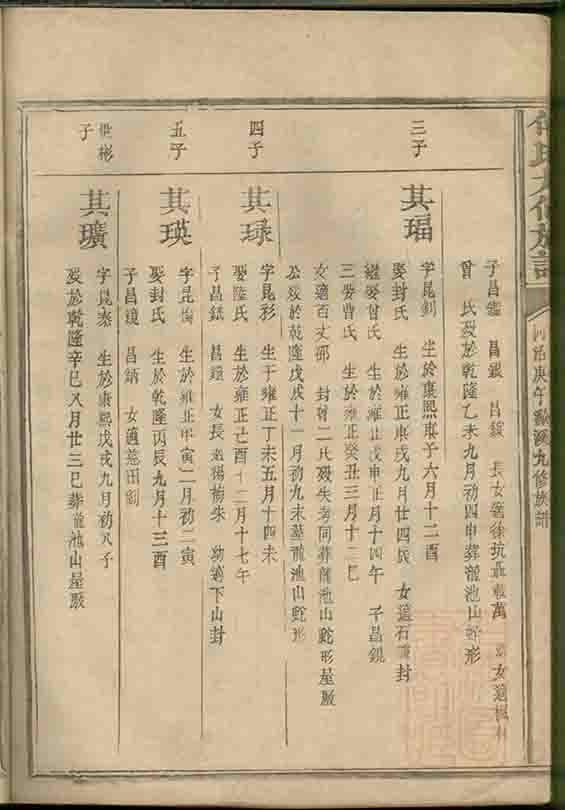 何氏大同族譜
同治庚午 九修族譜
子昌 昌鍛 昌鍰 長女適徐坑聶 萬 女適楓林
曾 氏歿於乾隆乙未九月初四申葬瀧池山蛇形
三子
其瑥
字昆釗 生於康熙庚子六月十二酉
娶封氏 生於雍正庚戌九月廿四辰 女適石 封
繼娶曾氏 生於雍正戊申正月十四午 子昌鏡
三娶曹氏 生於雍正癸丑三月十二巳
女適百丈邵 封曾二氏歿失考同葬瀧池山蛇形星廠
公歿於乾隆戊戌十一月初九未墓瀧池山蛇形
四子
其琭
字昆彩 生于雍正丁未五月十四未
娶陸氏 生於雍正己酉十二月十七午
子昌銛 昌鐘 女長適楊梅朱 幼適下山封
五子
其瑛
字昆 生於雍正甲寅二月初二寅
娶封氏 生於乾隆丙辰九月十三酉
子昌鏡 昌炳 女適慈田劉
世彬子
其璸
字昆泰 生於康熙戊戌九月初八子
歿於乾隆辛巳八月廿三巳葬瀧池山星廠